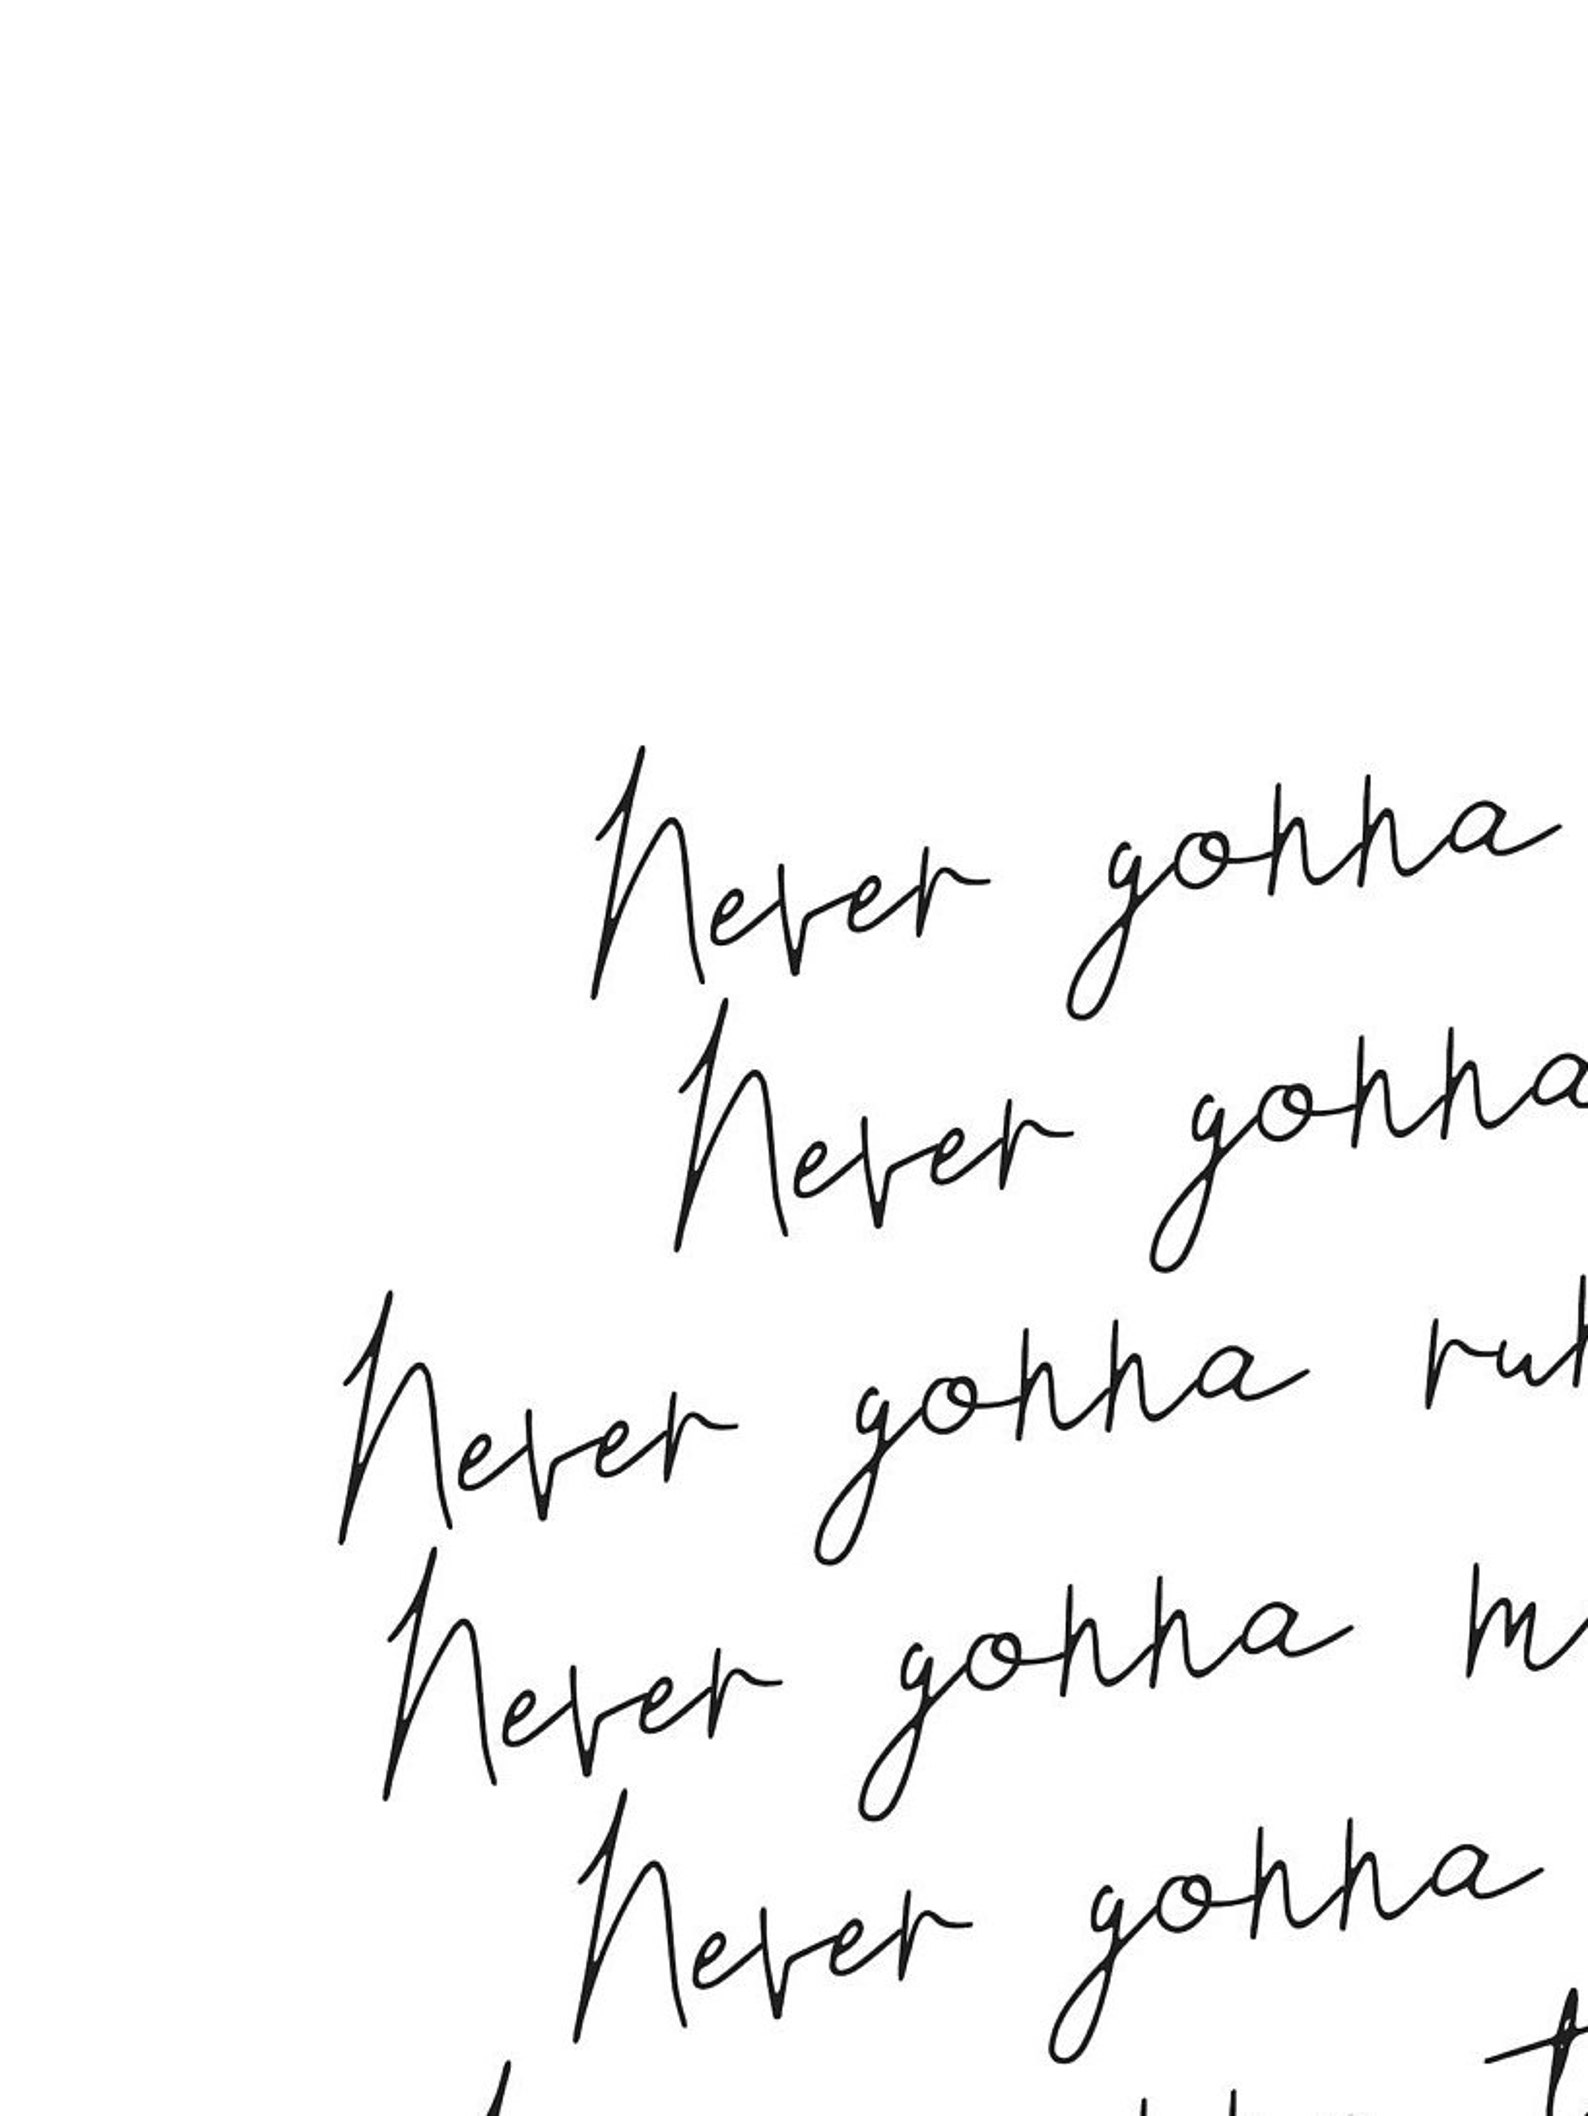 Never gonna
Never gonna
Never gonna
Never gonna
Never gonna